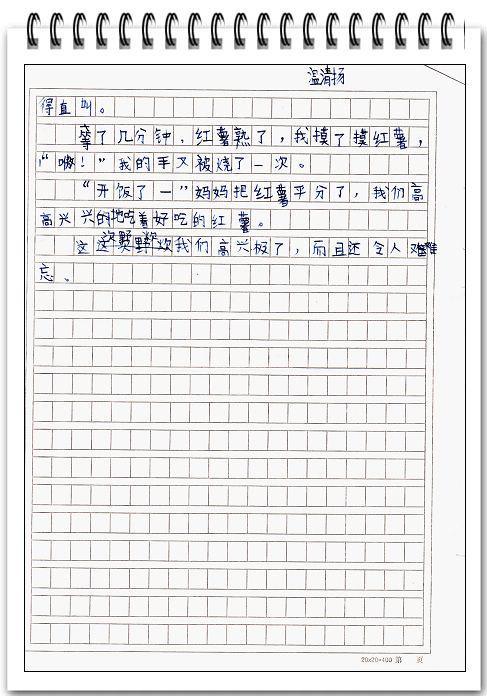 温清扬
得直叫。
等了几分钟，红薯熟了，我摸了摸红薯，
"嗷！"我的手又被烧了一次。
"开饭了—"妈妈把红薯平分了，我们高
高兴兴的地吃着好吃的红薯。
这次野炊我们高兴极了，而且还令人难
忘。
20×20=400 第 页